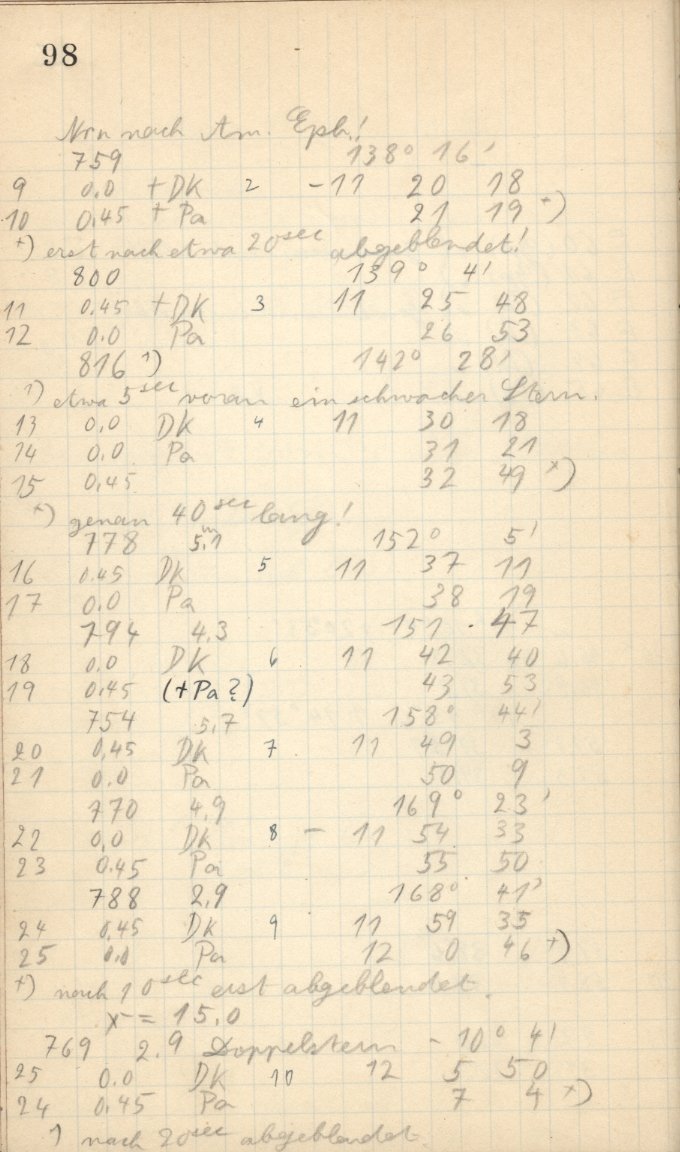 98
Nrn nach Am. Eph.!
759 138° 16'
9 0.0 + DK 2 - 11 20 18
10 0.45 + Pa 21 19 +)
+) erst nach etwa 20sec abgeblendet!
800 139° 4'
11 0.45 + DK 3 11 25 48
12 0.0 Pa 26 53
816 1) 142° 28'
1) etwa 5sec voran ein schwacher Stern.
13 0,0 DK 4 11 30 18
14 0.0 Pa 31 21
15 0,45 32 49 +)
+) genau 40sec lang!
778 5,1m 152° 5'
16 0.45 DK 5 11 37 11
17 0.0 Pa 38 19
794 4.3 151 . 47
18 0.0 DK 6 11 42 40
19 0.45 (+Pa?) 43 53
754 5,7 158° 44'
20 0,45 DK 7 11 49 3
21 0.0 Pa 50 9
770 4.9 169° 23'
22 0,0 DK 8 - 11 54 33
23 0.45 Pa 55 50
788 2,9 168° 41'
24 0,45 DK 9 11 59 35
25 0.0 Pa 12 0 46 +)
+) nach 10sec erst abgeblendet.
x = 15,0
769 2.9 Doppelstern - 10° 4'
25 0.0 DK 10 12 5 50
24 0,45 Pa 7 4 +)
1) nach 20sec abgeblendet.